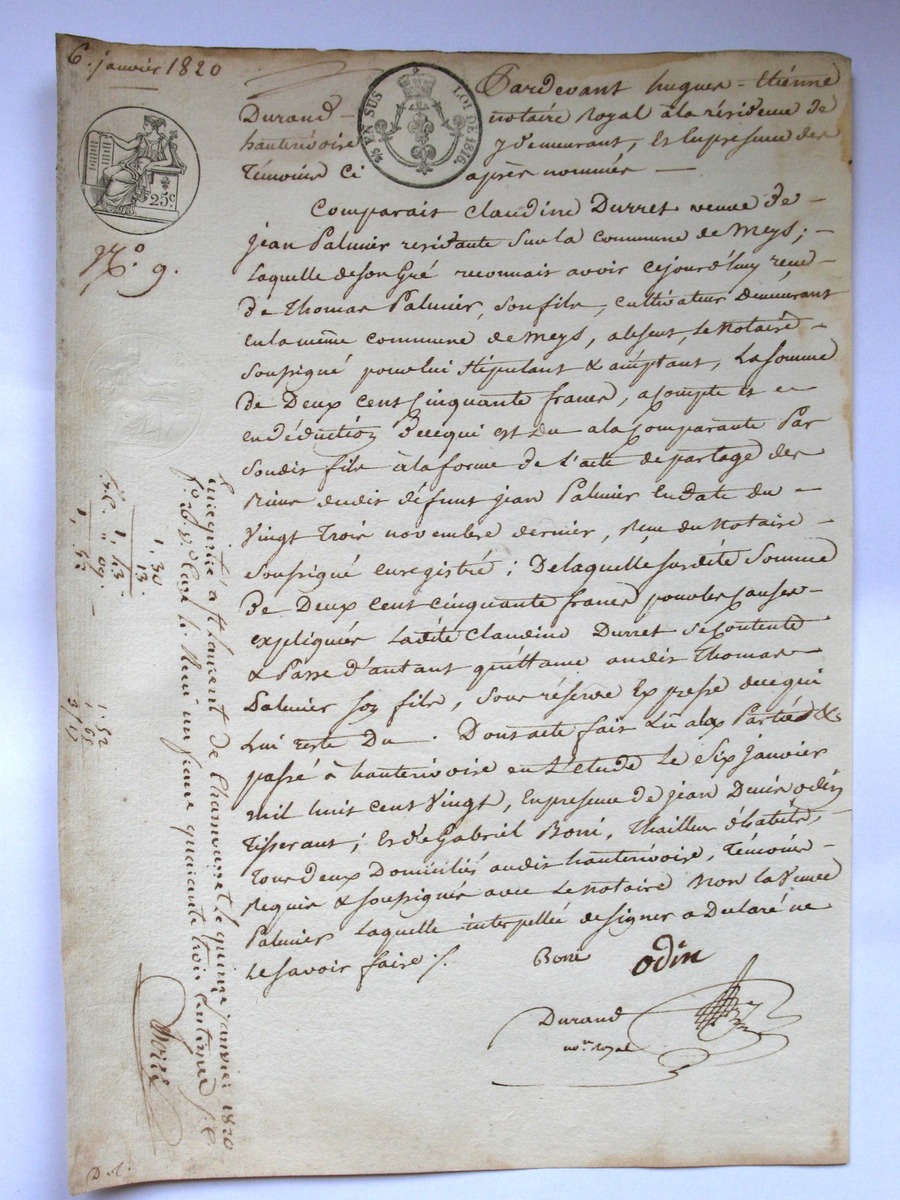 6. janvier 1820
Pardevant hugues-Etienne
Durand notaire Royal à la résidence de
hauterivoire y demeurant, Et en presence des
Témoins Ci après nommés
EN SUS
LOI DE 1816.
25c.
No. 9.
Comparait Claudine Durret veuve de
jean Palmier residante Sur la commune de Meys;
Laquelle de son Gré reconnait avoir cejourd'huy reçu
de Thomas Palmier, son fils, cultivateur demeurant
en la même commune de Meys, absent, Le Notaire
Soussigné pour lui stipulant & acceptant, La somme
de Deux cent cinquante francs, acompte et en
en déduction de ce qui est du a la Comparante Par
Sondit fils à la forme de L'acte de partage des
Biens dudit défunt jean Palmier En date du
Vingt Trois novembre dernier, Reçu du Notaire
Soussigné enregistré; De laquelle susdite Somme
De Deux cent cinquante francs pour les causes
expliquées Ladite Claudine Durret Se Contente
& Passe d'autant quittance audit Thomas
Palmier son fils, Sous réserve Expresse de ce qui
Lui reste Du. Dont acte fait Lu aux Parties &
passé à hauterivoire en L'etude Le Six Janvier
mil huit cent Vingt, En presence de jean Denis odin
Tisserant; Et de Gabriel Boni, Thailleur d'habits,
Tous deux Domiciliés audit hauterivoire, Témoins
Requis & Soussignés avec Le Notaire Non La Veuve
Palmier Laquelle interpellée de signer a Declaré ne
Le Savoir faire
Boni odin
Durand
nore. Royal
Enregistré a St Laurent de Chamousset le quinze janvier 1820
Reçu un franc quarante trois centimes
1. 30
13.
1. 43
09.
1. 52
1. 52
1. 65
3 17